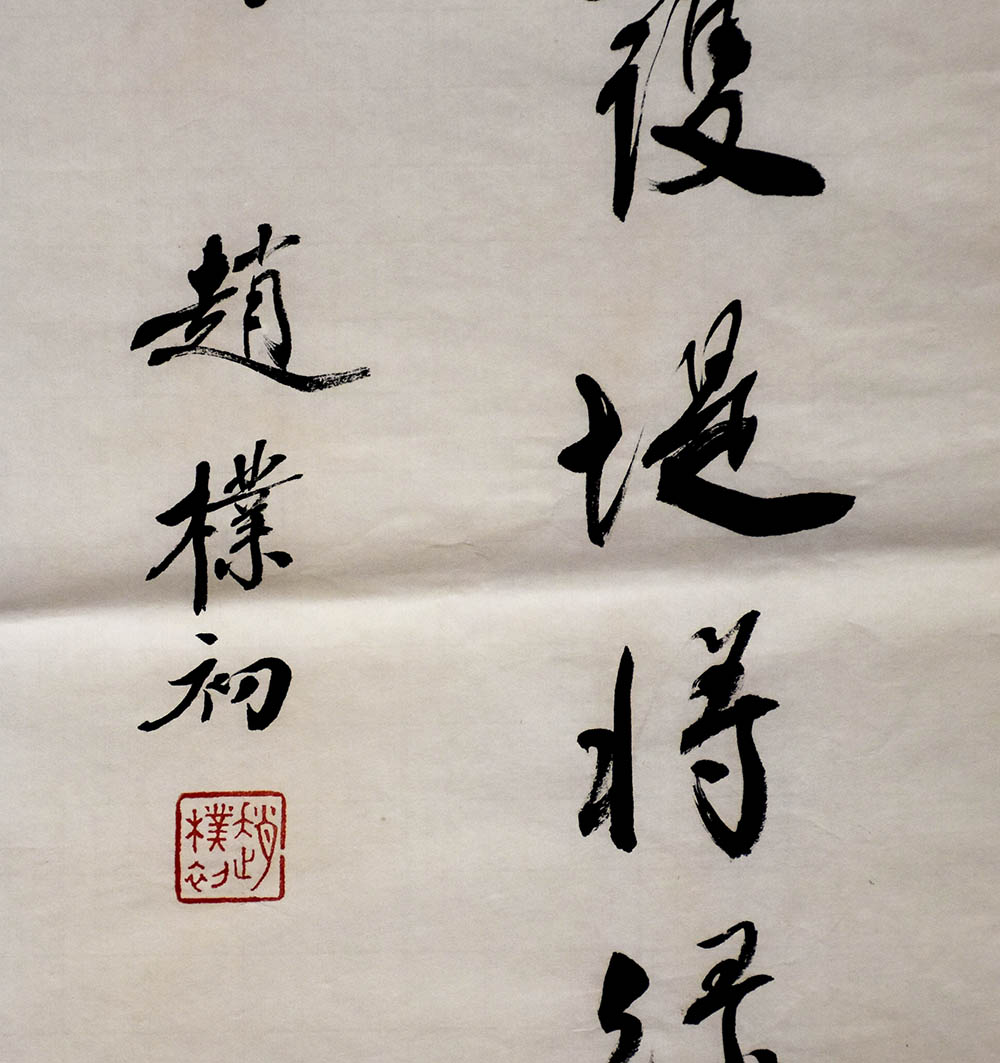 護堤將綠
趙樸初
趙樸初